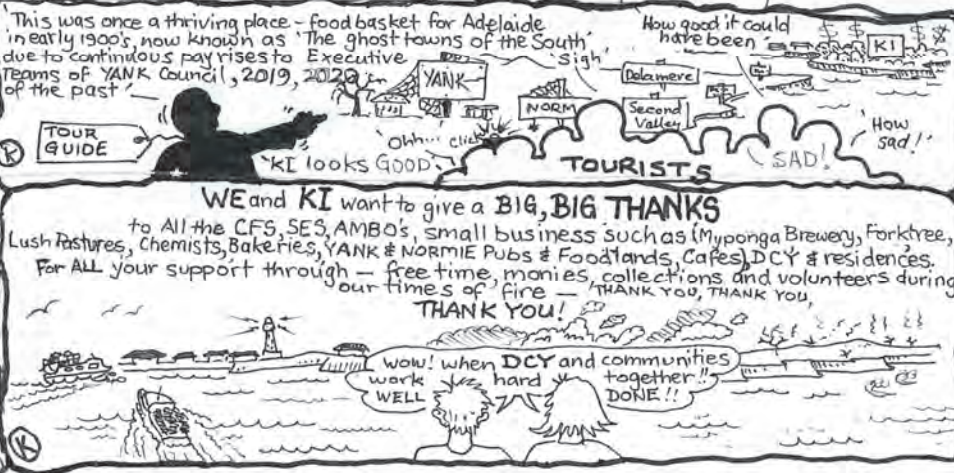 'This was once a thriving place - food basket for Adelaide
in early 1900's, now known as 'The ghost towns of the South'
due to continuous pay rises to Executive
Teams of YANK Council, 2019, 2020 in
of the past'
'sigh'
How good it could
have been
$ $ $ $
KI
YANK
Delamere
NORM
Second
Valley
TOUR
GUIDE
'Ohh... click
'KI looks GOOD'
TOURISTS
SAD!
'How
sad!'
K
WE and KI want to give a BIG, BIG THANKS
to All the CFS, SES, AMBO's, small business such as (Myponga Brewery, Forktree,
Lush Pastures, Chemists, Bakeries, YANK & NORMIE Pubs & Foodlands, Cafes) DCY & residences.
For ALL your support through - free time, monies, collections and volunteers during
our times of fire - 'THANK YOU, THANK YOU,
THANK YOU!
Wow! when DCY and communities
work hard together!!
WELL DONE!!
K